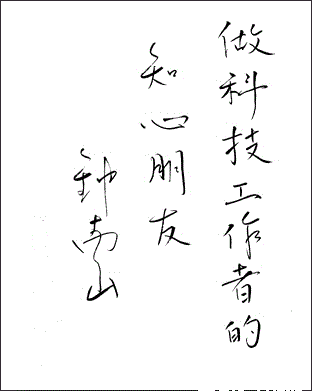 做科技工作者的
知心朋友
钟南山